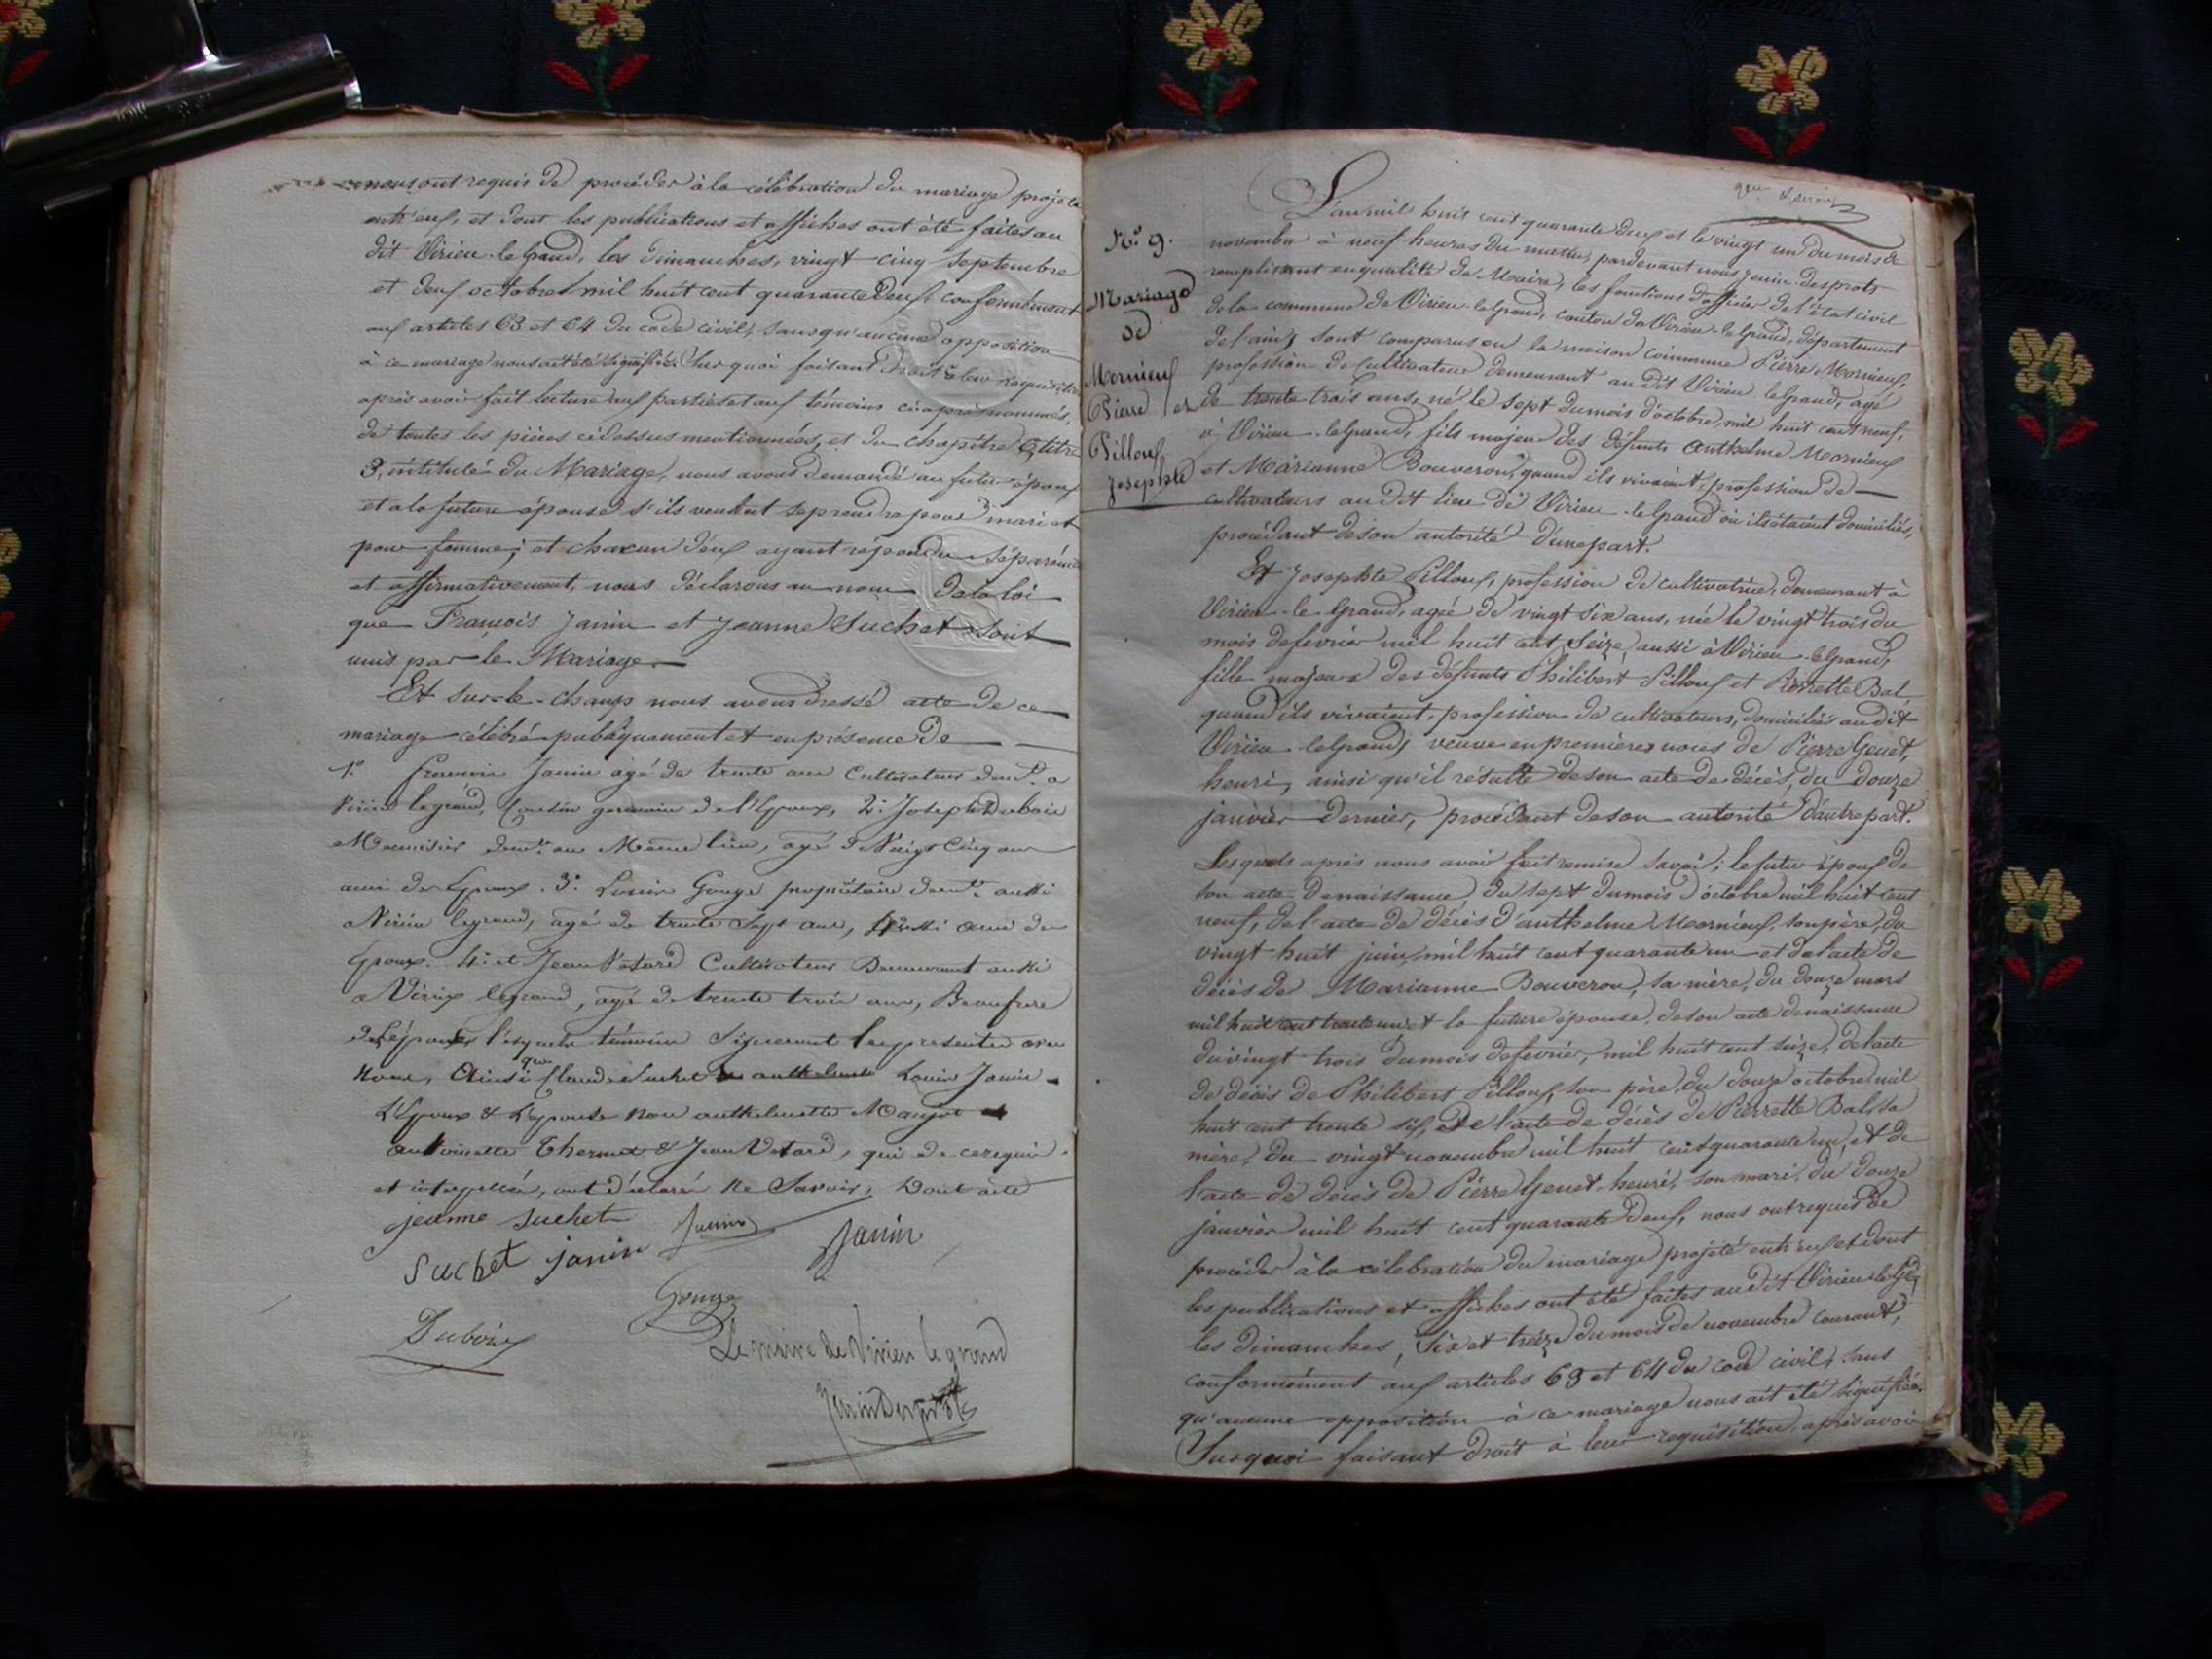 nous ont requis de procéder à la célébration du mariage projeté
entr'eux, et dont les publications et affiches ont été faites au
dit Virieu-le-Grand, les dimanches, vingt cinq septembre
et deux octobre mil huit cent quarante deux, conformément
aux articles 63 et 64 du code civil, sans qu'aucune opposition
à ce mariage nous ait été signifiée. Sur quoi faisant droit à leur requisition
après avoir fait lecture aux parties et aux témoins ci après nommés,
de toutes les pièces cidessus mentionnées, et du chapitre 6, titre
3, intitulé du Mariage, nous avons demandé au futur époux
et à la future épouse s'ils veulent se prendre pour mari et
pour femme; et chacun d'eux ayant répondu séparément
et affirmativement, nous déclarons au nom de la loi
que François Janin et Jeanne Suchet sont
unis par le Mariage.
Et sur-le-champ nous avons dressé acte de ce
mariage célébré publiquement et en présence de
1.° François Janin âgé de trente ans Cultivateur demt. a
Virieu legrand, Cousin germain de l'Epoux, 2.° Joseph Dubois
Menuisier demt. au Même lieu, âgé de Vingt Cinq ans
ami des Epoux. 3.° Louis Gouge propriétaire demt. aussi
a Virieu legrand, âgé de trente Sept ans, aussi ami des
Epoux. 4.° et Jean Vetard Cultivateur Demeurant aussi
a Virieu legrand, âgé de trente trois ans, Beaufrere
de l'épouse lesquels témoins Signeront le présent avec
Nous, Ainsi que Claude Suchet Louis Janin
L'Epoux & L'epouse Non anthelmette
antoinette Thermet & Jean Vetard, qui de ce requis
et interpellés, ont déclaré Ne Savoir, Dont acte
jeanne suchet Janin Janin
suchet janin
Gouge
Dubois
Le maire de Virieu le grand
Jenin Desprots
N.° 9.
Mariage
de
Mornieux
Pierre et
Pilloux
Josephte
L'an mil huit cent quarante deux et le vingt un du mois de
novembre à neuf heures du matin, pardevant nous Jenin Desprots
remplissant en qualité de Maire, les fonctions d'officier de l'état civil
de la commune de Virieu-le-Grand, canton de Virieu-le-Grand, département
de l'ain, sont comparus en la maison commune Pierre Mornieux,
profession de Cultivateur demeurant au dit Virieu-le-Grand, agé
de trente trois ans, né le sept du mois d'octobre, mil huit cent neuf,
à Virieu-le-Grand, fils majeur des défunts Anthelme Mornieux
et Marianne Bouveron, quand ils vivaient, profession de
cultivateurs au dit lieu de Virieu-le-Grand où ils étaient domiciliés,
procédant de son autorité d'une part.
Et Josephte Pilloux, profession de cultivatrice, demeurant à
Virieu-le-Grand, agée de vingt six ans, née le vingt trois du
mois de fevrier mil huit cent seize, aussi à Virieu-le-Grand,
fille majeure des défunts Philibert Pilloux et Pierrette Bal
quand ils vivaient, profession de cultivateurs, domiciliés au dit
Virieu-le-Grand, veuve en premières noces de Pierre Genet,
henri, ainsi qu'il résulte de son acte de décès, du douze
janvier dernier, procédant de son autorité d'autre part.
Lesquels après nous avoir fait remise savoir; le futur époux de
son acte de naissance du sept du mois d'octobre mil huit cent
neuf, de l'acte de décès d'anthelme Mornieux, son père, du
vingt-huit juin mil huit cent quarante un et de l'acte de
décès de Marianne Bouveron, sa mère, du douze mars
mil huit cent trente un et la future épouse, de son acte de naissance
du vingt trois du mois de fevrier, mil huit cent seize, de l'acte
de décès de Philibert Pilloux, son père, du douze octobre mil
huit cent trente six, De l'acte de décès de Pierrette Bal, sa
mère, du vingt novembre mil huit cent quarante un, et de
l'acte de décès de Pierre Genet-henri, son mari, du douze
janvier mil huit cent quarante deux, nous ont requis de
procéder à la célébration du mariage projeté entr'eux et dont
les publications et affiches ont été faites au dit Virieu-le-Gd,
les dimanches, six et treize du mois de novembre courant,
conformément aux articles 63 et 64 du code civil, sans
qu'aucune opposition à ce mariage nous ait été signifiée.
Sur quoi faisant droit à leur requisition, après avoir